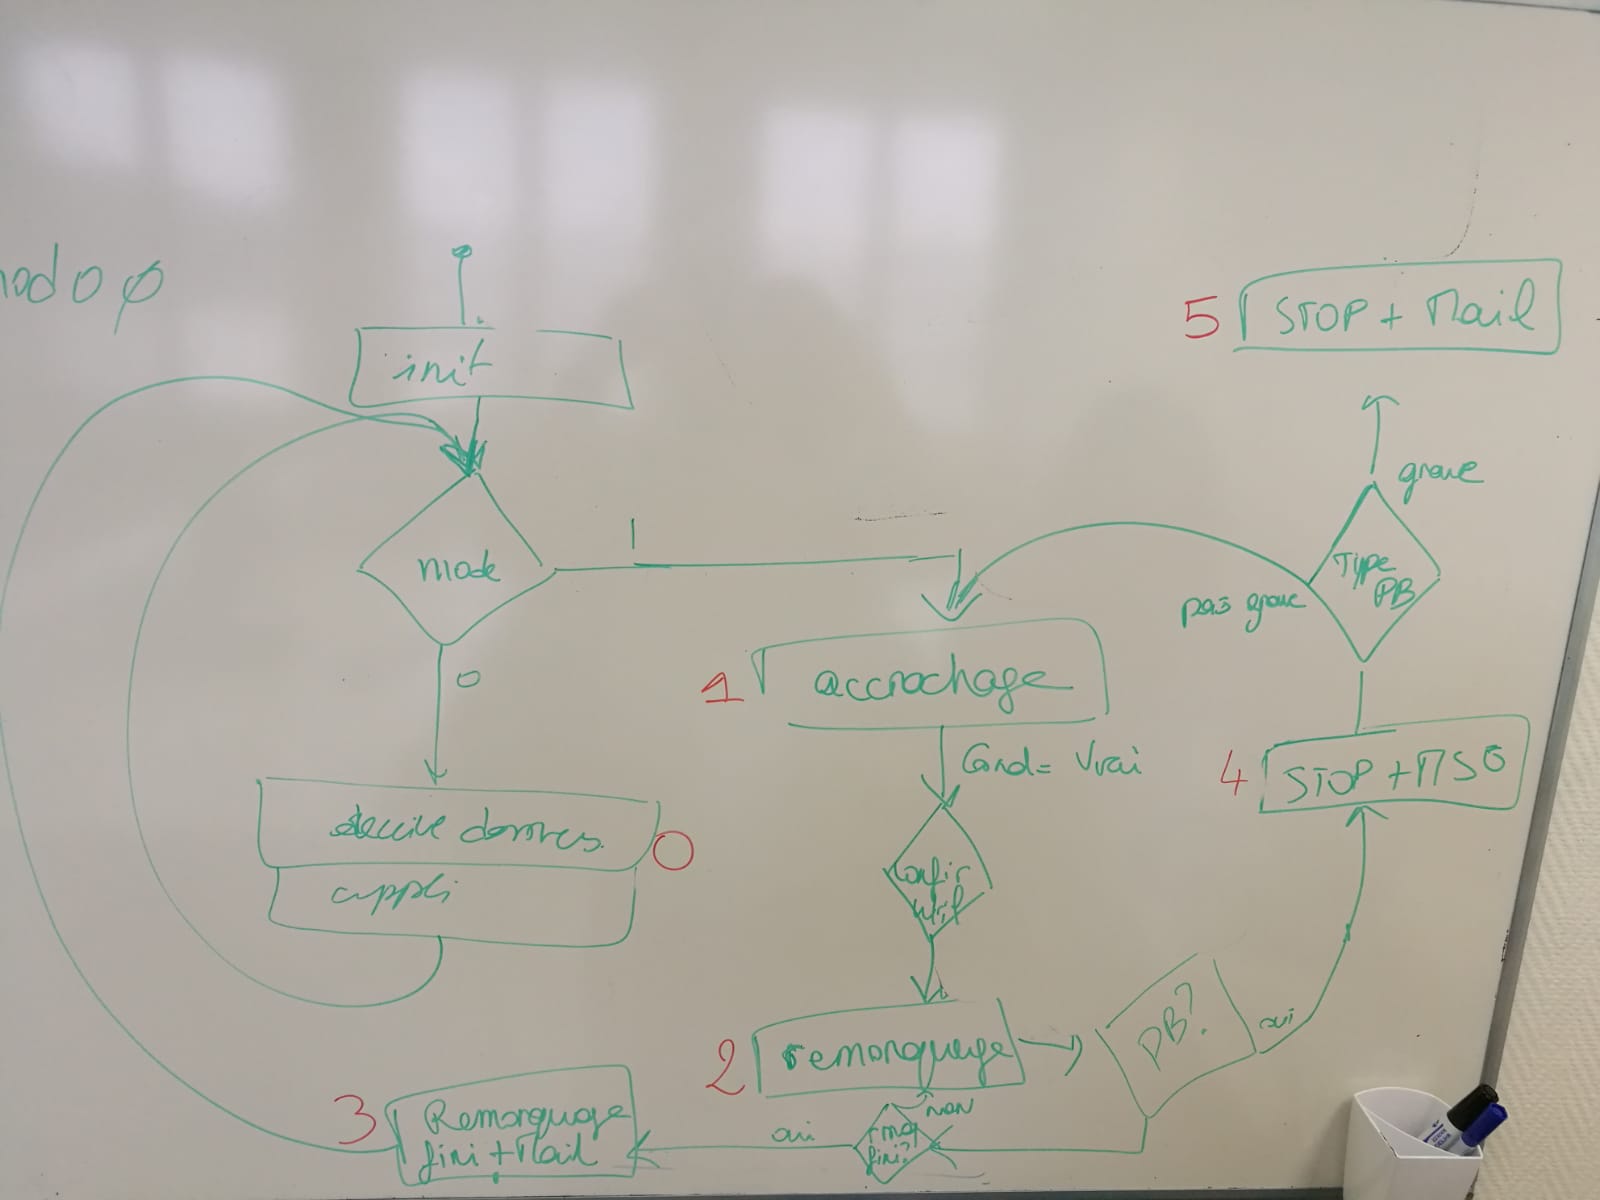 init
mode
0
1
données
appli
0
1
accrochage
Cond= Vrai
Confir
2
remorquage
PB?
oui
non
rmq
fini?
oui
3
Remorquage
fini + Mail
4
STOP + MSG
Type
PB
pas grave
grave
5
STOP + Mail